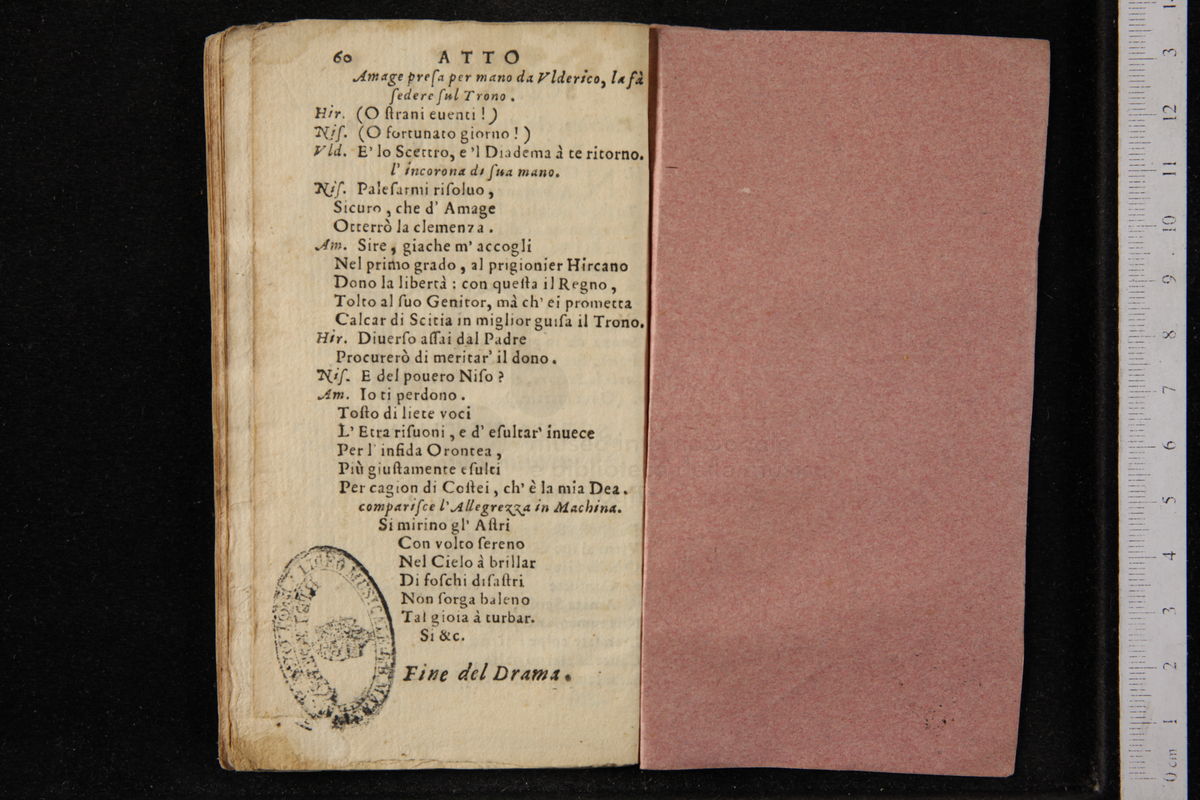 60 ATTO
Amage preſa per mano da Vlderico, la fà
ſedere ſul Trono.
Hir. (O ſtrani euenti!)
Niſ. (O fortunato giorno!)
Vld. E' lo Scettro, e 'l Diadema à te ritorno.
l' incorona di ſua mano.
Niſ. Paleſarmi riſoluo,
Sicuro, che d' Amage
Otterrò la clemenza.
Am. Sire, giache m' accogli
Nel primo grado, al prigionier Hircano
Dono la libertà: con queſta il Regno,
Tolto al ſuo Genitor, mà ch' ei prometta
Calcar di Scitia in miglior guiſa il Trono.
Hir. Diuerſo aſſai dal Padre
Procurerò di meritar' il dono.
Niſ. E del pouero Niſo?
Am. Io ti perdono.
Toſto di liete voci
L' Etra riſuoni, e d' eſultar' inuece
Per l' infida Orontea,
Più giuſtamente eſulti
Per cagion di Coſtei, ch' è la mia Dea.
compariſce l' Allegrezza in Machina.
Si mirino gl' Aſtri
Con volto ſereno
Nel Cielo à brillar
Di foſchi diſaſtri
Non ſorga baleno
Tal gioia à turbar.
Si &c.
Fine del Drama.
LICEO MUSICALE
0 cm 1 2 3 4 5 6 7 8 9 10 11 12 3